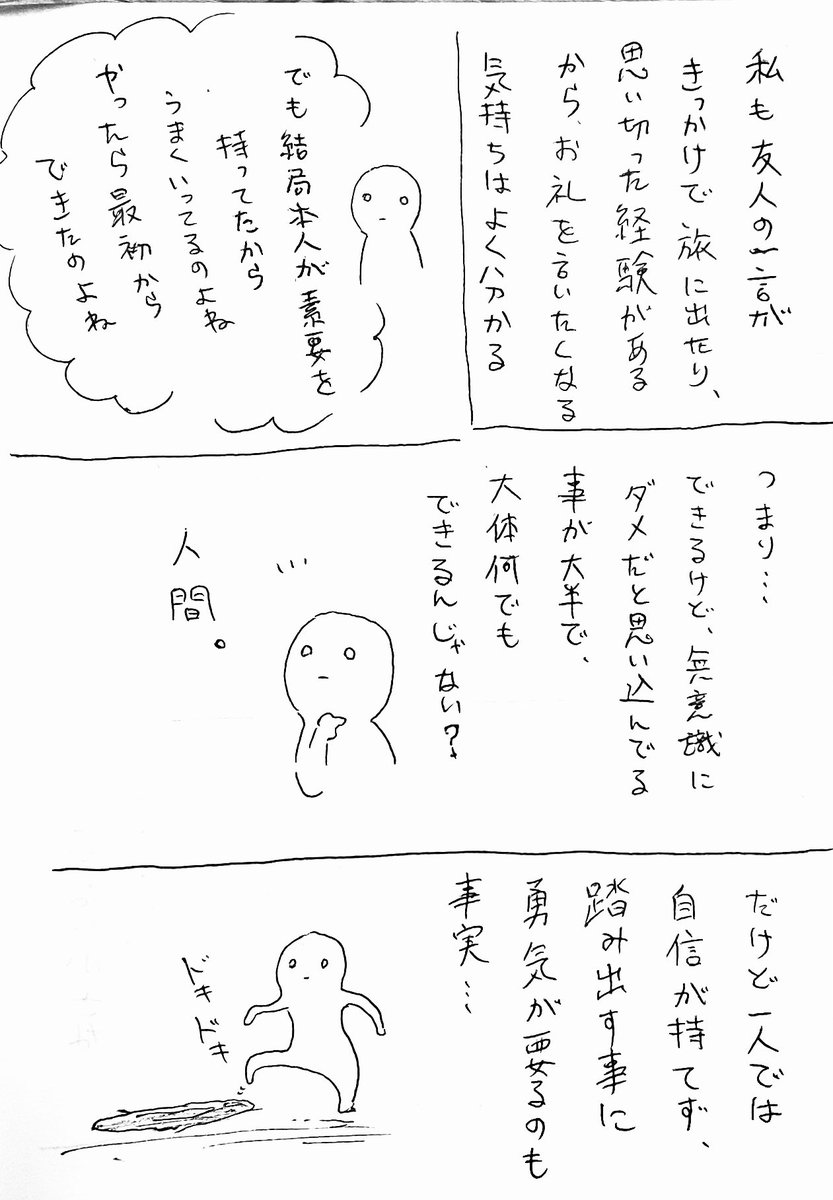 私も友人の一言が
きっかけで旅に出たり、
思い切った経験がある
から、お礼を言いたくなる
気持ちはよく分かる
でも結局本人が素要を
持ってたから
うまくいってるのよね
やったら最初から
できたのよね
つまり…
できるけど、無意識に
ダメだと思い込んでる
事が大半で、
大体何でも
できるんじゃない?
人間。
だけど一人では
自信が持てず、
踏み出す事に
勇気が要るのも
事実…
ドキドキ